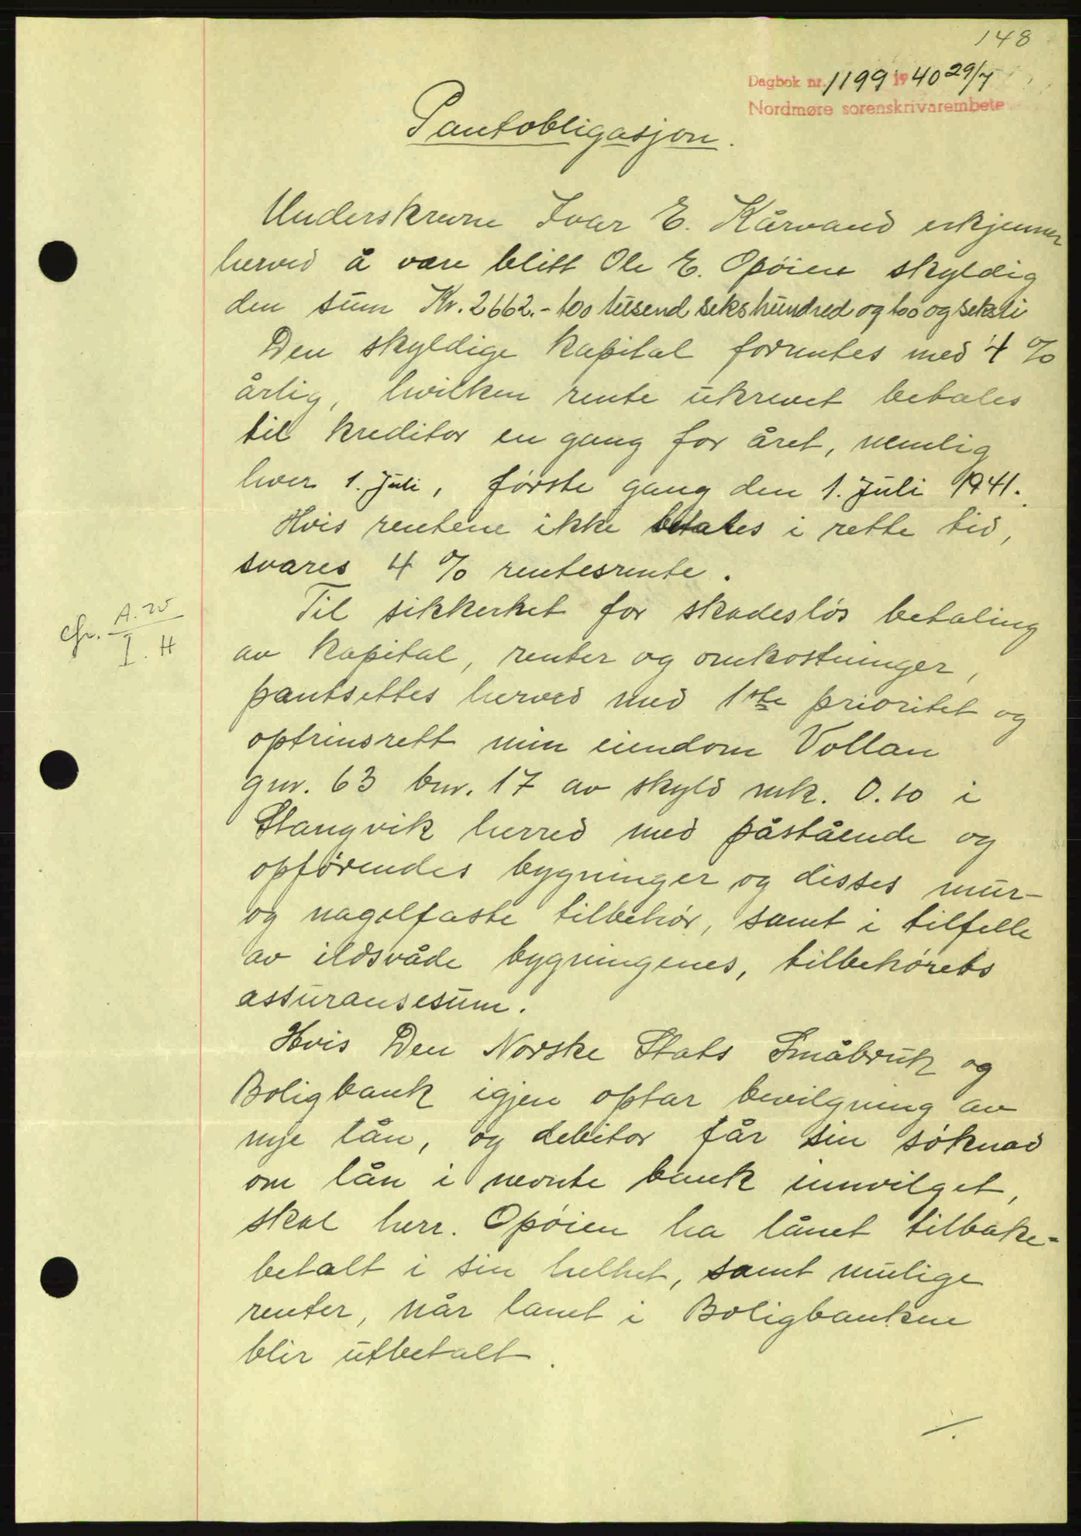 148
Dagbok nr. 1199 1940 29/7
Nordmøre sorenskrivarembete
Pantobligasjon.
Underskrevne Ivar E. Kårvand erkjenner
herved å være blitt Ole E. Opøien skyldig
den sum Kr. 2662.- too tusend sekshundred og too og seksti
Den skyldige kapital forrentes med 4 %
årlig, hvilken rente ukrevet betales
til kreditor en gang for året, nemlig
hver 1. Juli, første gang den 1. Juli 1941.
Hvis rentene ikke betales i rette tid,
svares 4 % rentesrente.
Til sikkerhet for skadesløs betaling
cfr. A. 25
I. H
av kapital, renter og omkostninger,
pantsettes herved med 1ste prioritet og
optrinsrett min eiendom Vollan
gnr. 63 bnr. 17 av skyld mk. 0.10 i
Stangvik herred med påstående og
opførendes bygninger og disses mur-
og nagelfaste tilbehør, samt i tilfelle
av ildsvåde bygningenes, tilbehørets
assuransesum.
Hvis Den Norske Stats Småbruk og
Boligbank igjen optar bevilgning av
nye lån, og debitor får sin søknad
om lån i nevnte bank innvilget,
skal herr. Opøien ha lånet tilbake-
betalt i sin helhet, samt mulige
renter, når lånet i Boligbanken
blir utbetalt.
./.